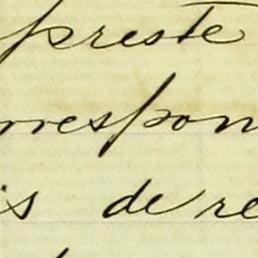 preste
rrespon
is de re